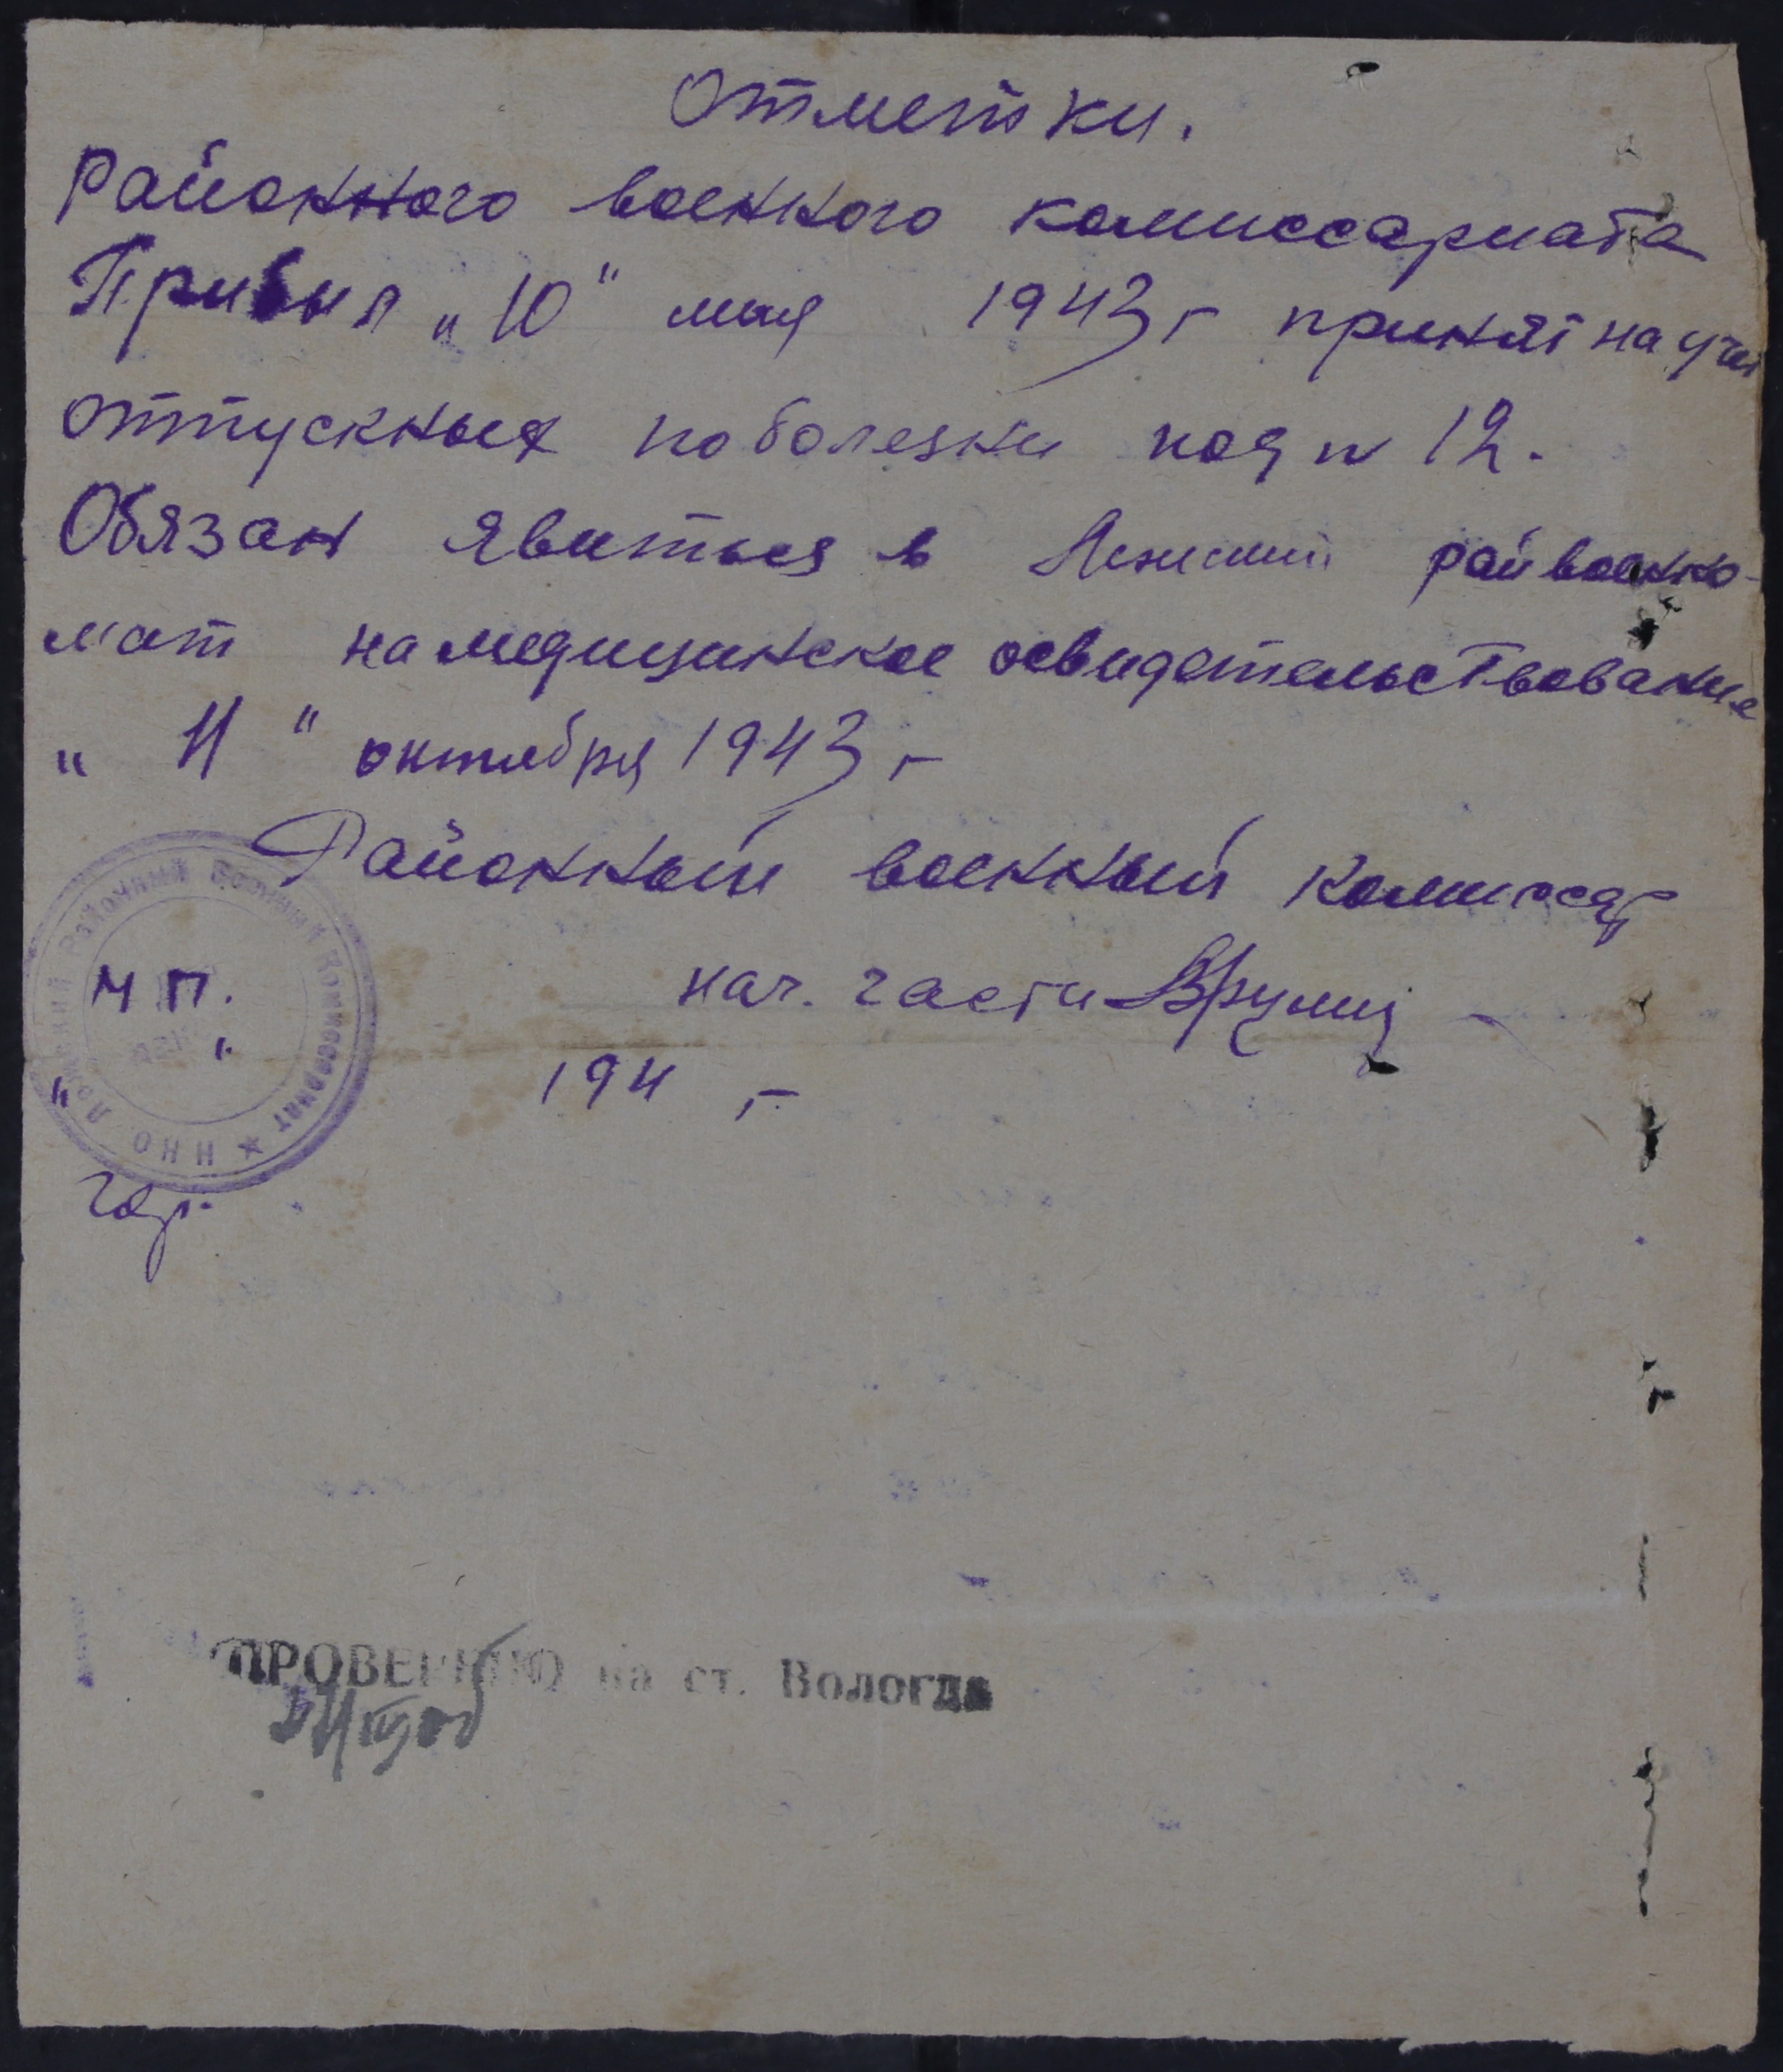 Отметки.
районного военного комиссариата
Прибыл „10" мая 1943 г принят на учет
оттускных по болезни под n 12.
Обязан явиться в Лежский райвоенко-
мат на медицинское освидетельствование
„ 11 " октября 1943 г
Районный военный комиссар
М П. нач. части
„ " 194 г
гор.
НКО Лежский Районный Военный Комиссариат
ПРОВЕРЕНО на ст. Вологда